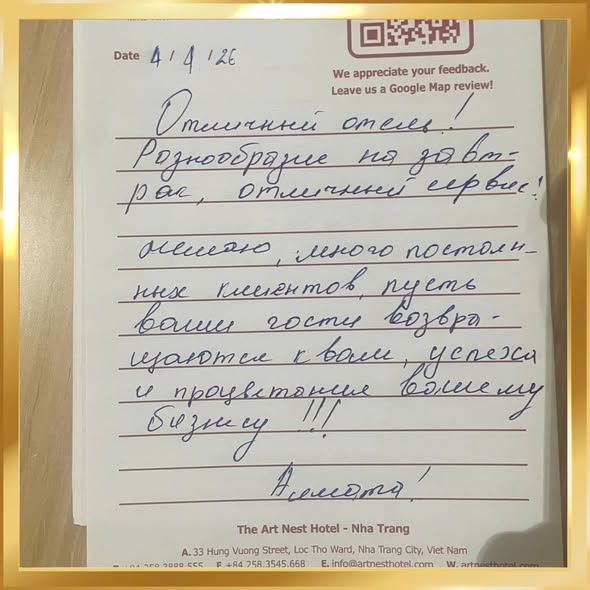 Date 4 / 4 / 26
We appreciate your feedback.
Leave us a Google Map review!
Отличный отель!
Разнообразие на завт-
рак, отличный сервис!
желаю, много постоян-
ных клиентов, пусть
ваши гости возвра-
щаются к вам, успеха
и процветания вашему
бизнесу !!!
Алмата!
The Art Nest Hotel - Nha Trang
A. 33 Hung Vuong Street, Loc Tho Ward, Nha Trang City, Viet Nam
T +84 258.3888.555 F +84 258.3545.668 E. info@artnesthotel.com W. artnesthotel.com